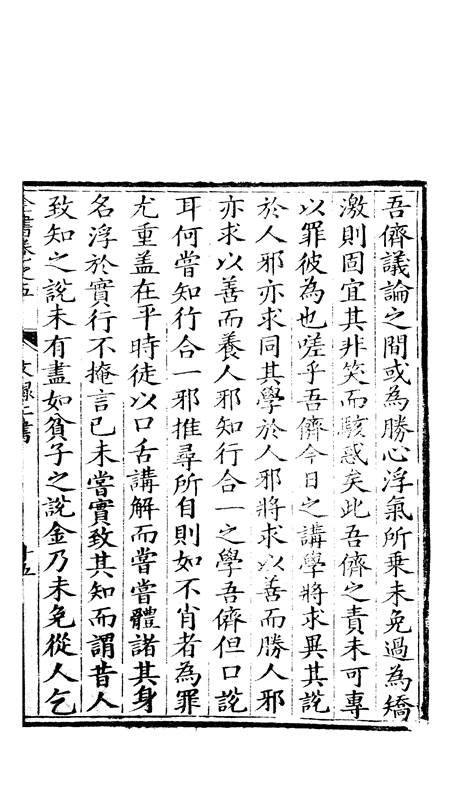 吾儕議論之間或為勝心浮氣所乗未免過為矯
激則固宜其非笑而駭惑矣此吾儕之責未可專
以罪彼為也嗟乎吾儕今日之講學將求異其說
於人邪亦求同其學於人邪將求以善而勝人邪
亦求以善而養人邪知行合一之學吾儕但口說
耳何嘗知行合一邪推尋所自則如不肖者為罪
尤重盖在平時徒以口舌講解而嘗嘗體諸其身
名浮於實行不掩言已未嘗實致其知而謂昔人
致知之說未有盡如貧子之說金乃未免從人乞
全書卷之五 文録二書 十五